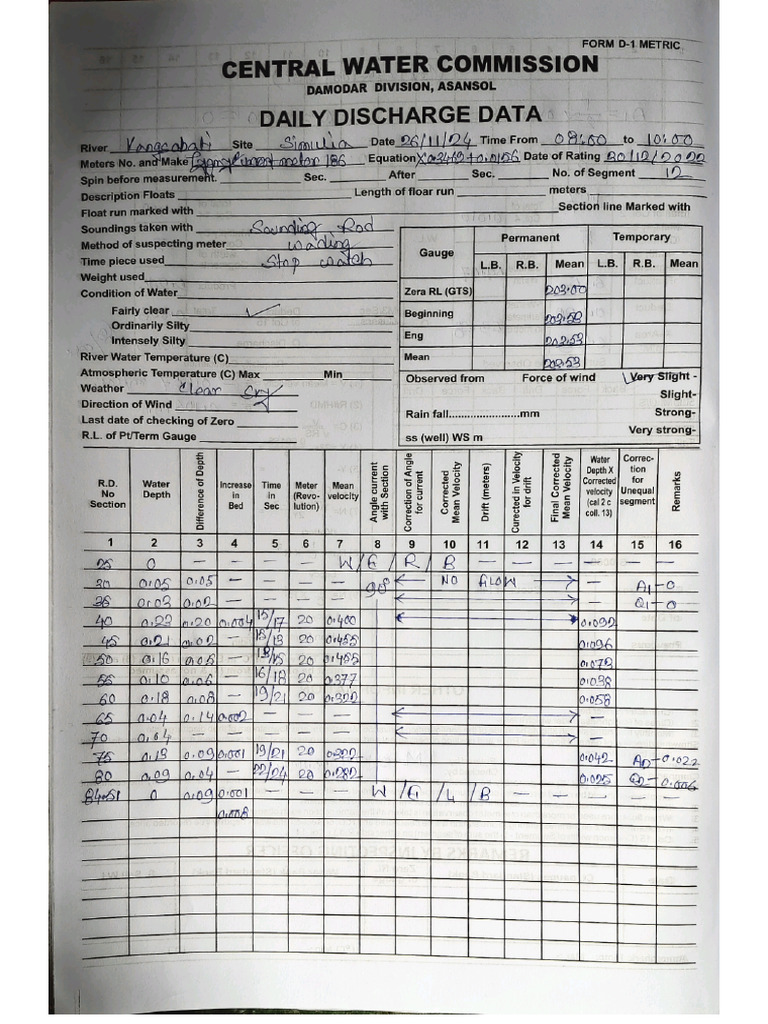 FORM D-1 METRIC
CENTRAL WATER COMMISSION
DAMODAR DIVISION, ASANSOL
DAILY DISCHARGE DATA
River Kangsabati Site Simulia Date 26/11/24 Time From 08:00 to 10:00
Meters No. and Make 186 Equation Date of Rating 20/12/2022
Spin before measurement. Sec. After Sec. No. of Segment 12
Description Floats Length of floar run meters
Float run marked with Section line Marked with
Soundings taken with Sounding Rod
Method of suspecting meter wading
Time piece used Stop watch
Weight used
Condition of Water
Fairly clear ✓
Ordinarily Silty
Intensely Silty
River Water Temperature (C)
Atmospheric Temperature (C) Max Min
Weather Clear Dry
Direction of Wind
Last date of checking of Zero
R.L. of Pt/Term Gauge
Gauge Permanent Temporary
L.B. R.B. Mean L.B. R.B. Mean
Zera RL (GTS) 203.00
Beginning 202.53
Eng 202.53
Mean 202.53
Observed from Force of wind ✓ Very Slight -
Slight-
Rain fall........................mm Strong-
Very strong-
ss (well) WS m
R.D. No Section Water Depth Difference of Depth Increase in Bed Time in Sec Meter (Revo- lution) Mean velocity Angle current with Section Correction of Angle for current Corrected Mean Velocity Drift (meters) Curected in Velocity for drift Final Corrected Mean Velocity Water Depth X Corrected velocity (cal 2 c coll. 13) Correc- tion for Unequal segment Remarks
1 2 3 4 5 6 7 8 9 10 11 12 13 14 15 16
25 0 — — — — W / E / R / B — — — — — —
30 0.05 0.05 — — — — 90 NO FLOW — A1-0
35 0.03 0.02 — — — — — Q1-0
40 0.23 0.20 0.004 15/17 20 0.400 0.092
45 0.21 0.02 — 20 0.455 0.096
50 0.16 0.05 — 20 0.455 0.072
55 0.10 0.06 — 16/18 20 0.377 0.038
60 0.18 0.08 — 19/21 20 0.322 0.058
65 0.04 0.14 0.002 — — — —
70 0.04 — — — — — —
75 0.13 0.09 0.001 19/21 20 0.322 0.042 A2-0.022
80 0.09 0.04 — 22/24 20 0.282 0.025 Q2-0.006
84.51 0 0.09 0.001 — — — W / E / L / B — — — — —
0.008